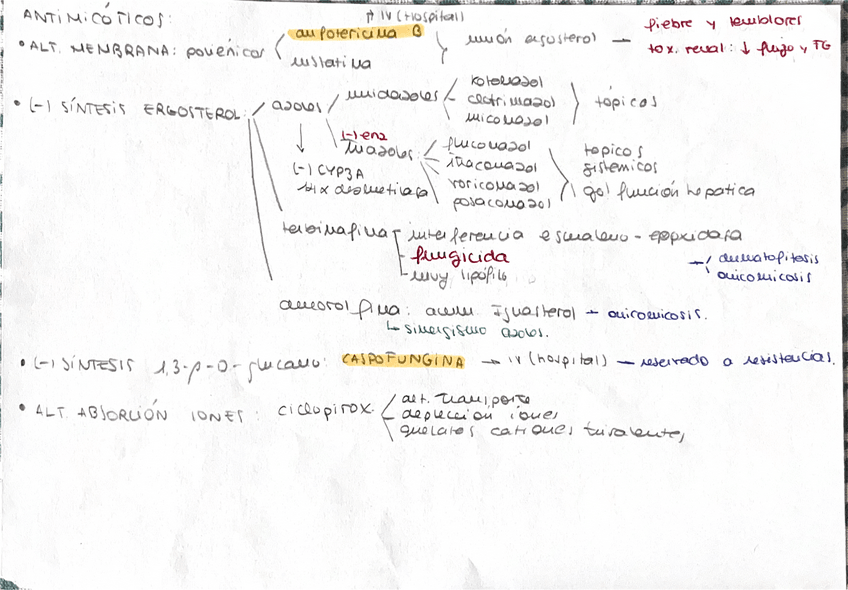 ANTIMICÓTICOS:
↗ IV (Hospital)
• ALT. MEMBRANA: poliénicos < anfotericina B
nistatina
} unión ergosterol — fiebre y temblores
tox. renal: ↓ flujo y FG
• (-) SÍNTESIS ERGOSTEROL: / azoles / imidazoles
ketonazol
clotrimazol
miconazol
> tópicos
(-) enz
triazoles:
fluconazol
itraconazol
voriconazol
posaconazol
tópicos
sistémicos
ojo! función hepática
↓
(-) CYP3A
14α desmetilasa
terbinafina - interferencia escualeno - epoxidasa
- fungicida
- muy lipófilo
→ dermatofitosis
onicomicosis
amorolfina: acum. Ignosterol - onicomicosis.
↳ sinergismo azoles.
• (-) SÍNTESIS 1,3-β-D-glucano: CASPOFUNGINA → IV (hospital) — reservado a resistencias.
• ALT. ABSORCIÓN IONES: ciclopirox
alt. transporte
depleción iones
quelatos cationes trivalentes